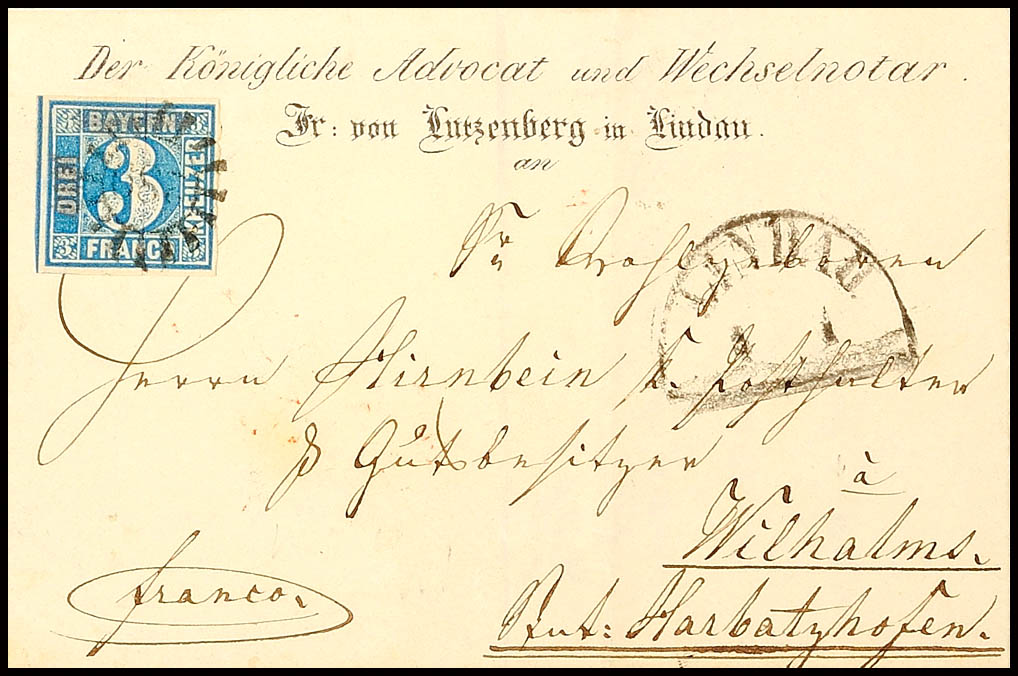 Der Königliche Advocat und Wechselnotar.
Fr: von Lutzenberg in Lindau.
an
BAYERN
DREI
KREUZER
3
3 FRANCO
LINDAU
Sr Wohlgeboren
Herrn Hirnbein k. Posthalter
& Gutsbesitzer
à
Wilhalms.
franco.
Stat: Harbatzhofen.